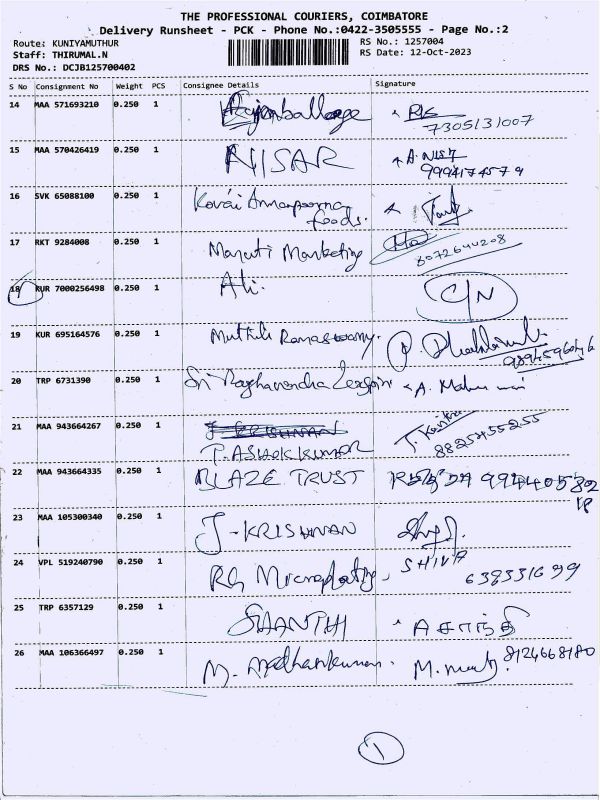 THE PROFESSIONAL COURIERS, COIMBATORE
Delivery Runsheet - PCK - Phone No.:0422-3505555 - Page No.:2
Route: KUNIYAMUTHUR
Staff: THIRUMAL.N
DRS No.: DCJB125700402
RS No.: 1257004
RS Date: 12-Oct-2023
S No Consignment No Weight PCS Consignee Details Signature
14 MAA 571693210 0.250 1 RK
7305131007
15 MAA 570426419 0.250 1 NISAR A. NISA
9994174579
16 SVK 65088100 0.250 1 Kovai Annapoorna
foods.
17 RKT 9284008 0.250 1 Maruti Marketing
8072644208
18 KUR 7000256498 0.250 1 Ali. C/N
19 KUR 695164576 0.250 1 Muthu Ramaswamy.
20 TRP 6731390 0.250 1 Sri Raghavendra
21 MAA 943664267 0.250 1 J KRISHNAN T. Kavitha
P. ASHOKKUMAR 8825455255
22 MAA 943664335 0.250 1 BLAZE TRUST
23 MAA 105300340 0.250 1 J-KRISHNAN
24 VPL 519240790 0.250 1 RG Microplating, SHIVA
25 TRP 6357129 0.250 1 SHANTHI A சாந்தி
26 MAA 106366497 0.250 1 M. Madhankumar. M. 8124668180
1